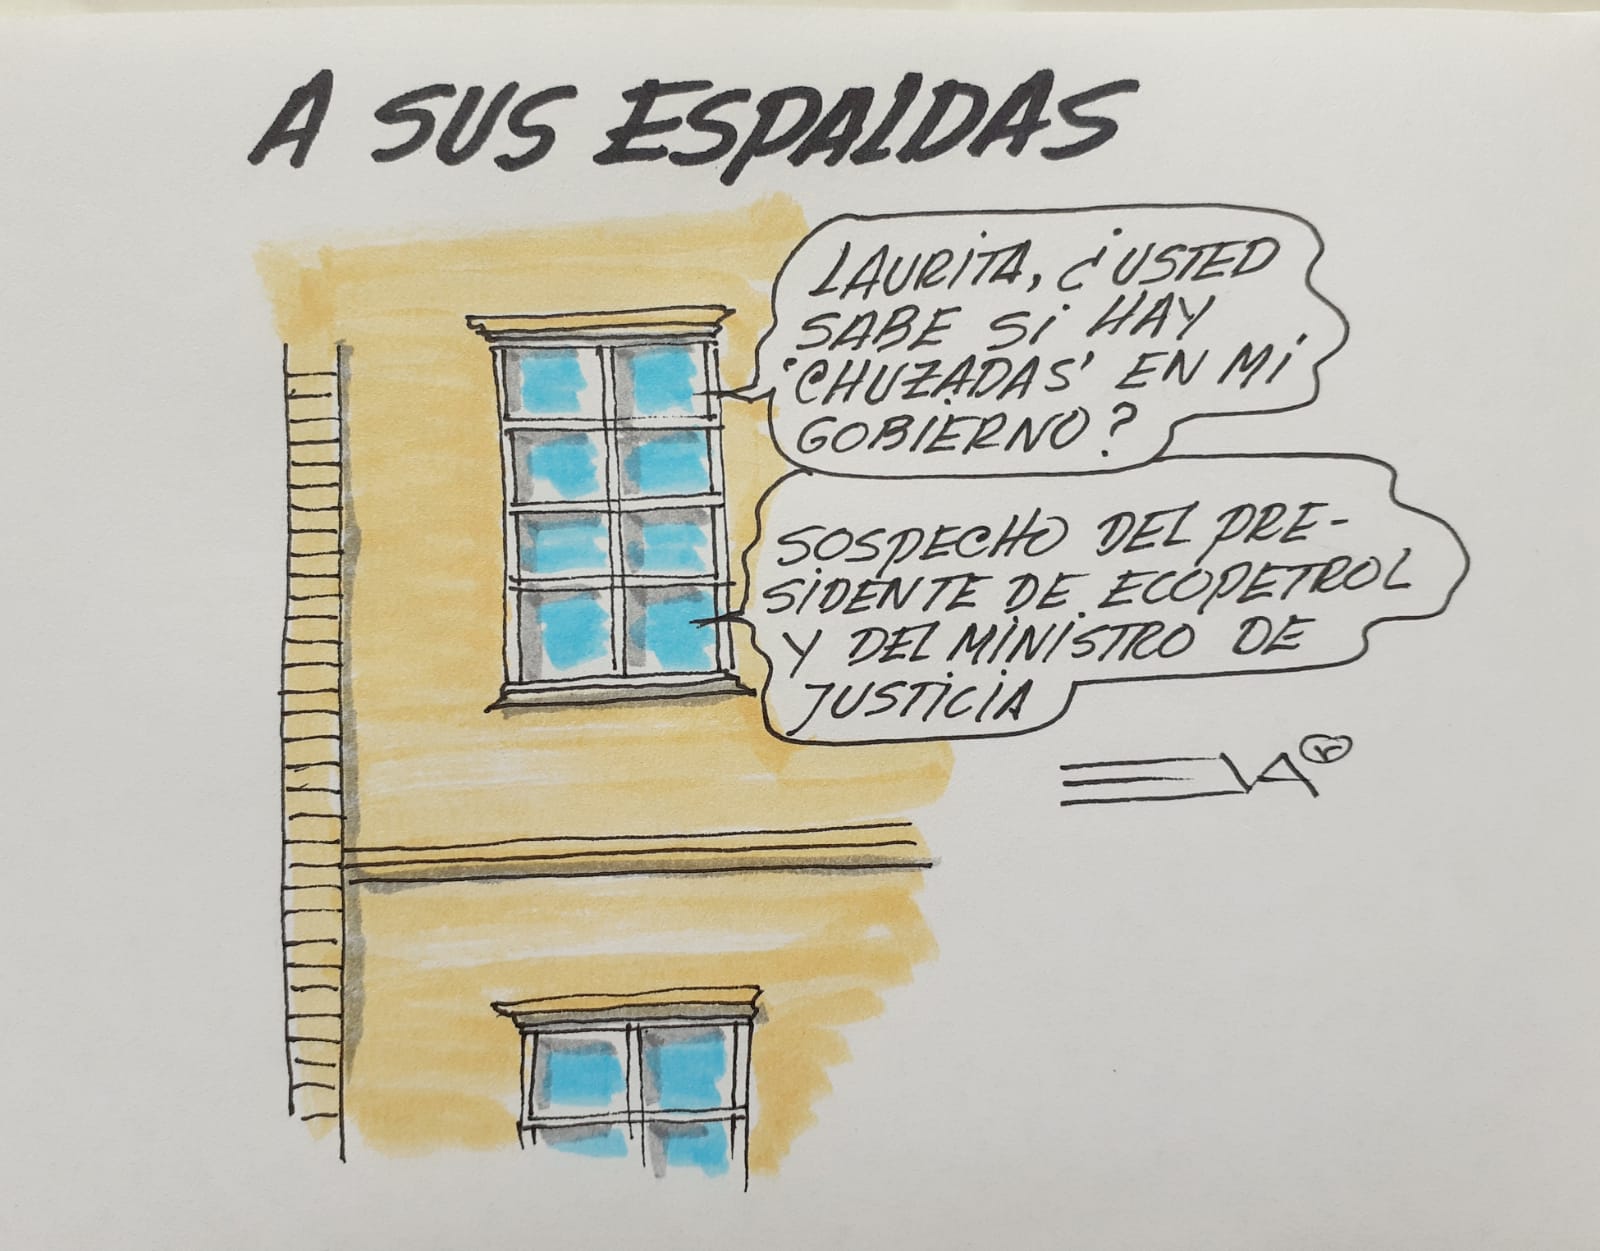 A SUS ESPALDAS
LAURITA, ¿USTED
SABE SI HAY
'CHUZADAS' EN MI
GOBIERNO?
SOSPECHO DEL PRE-
SIDENTE DE ECOPETROL
Y DEL MINISTRO DE
JUSTICIA